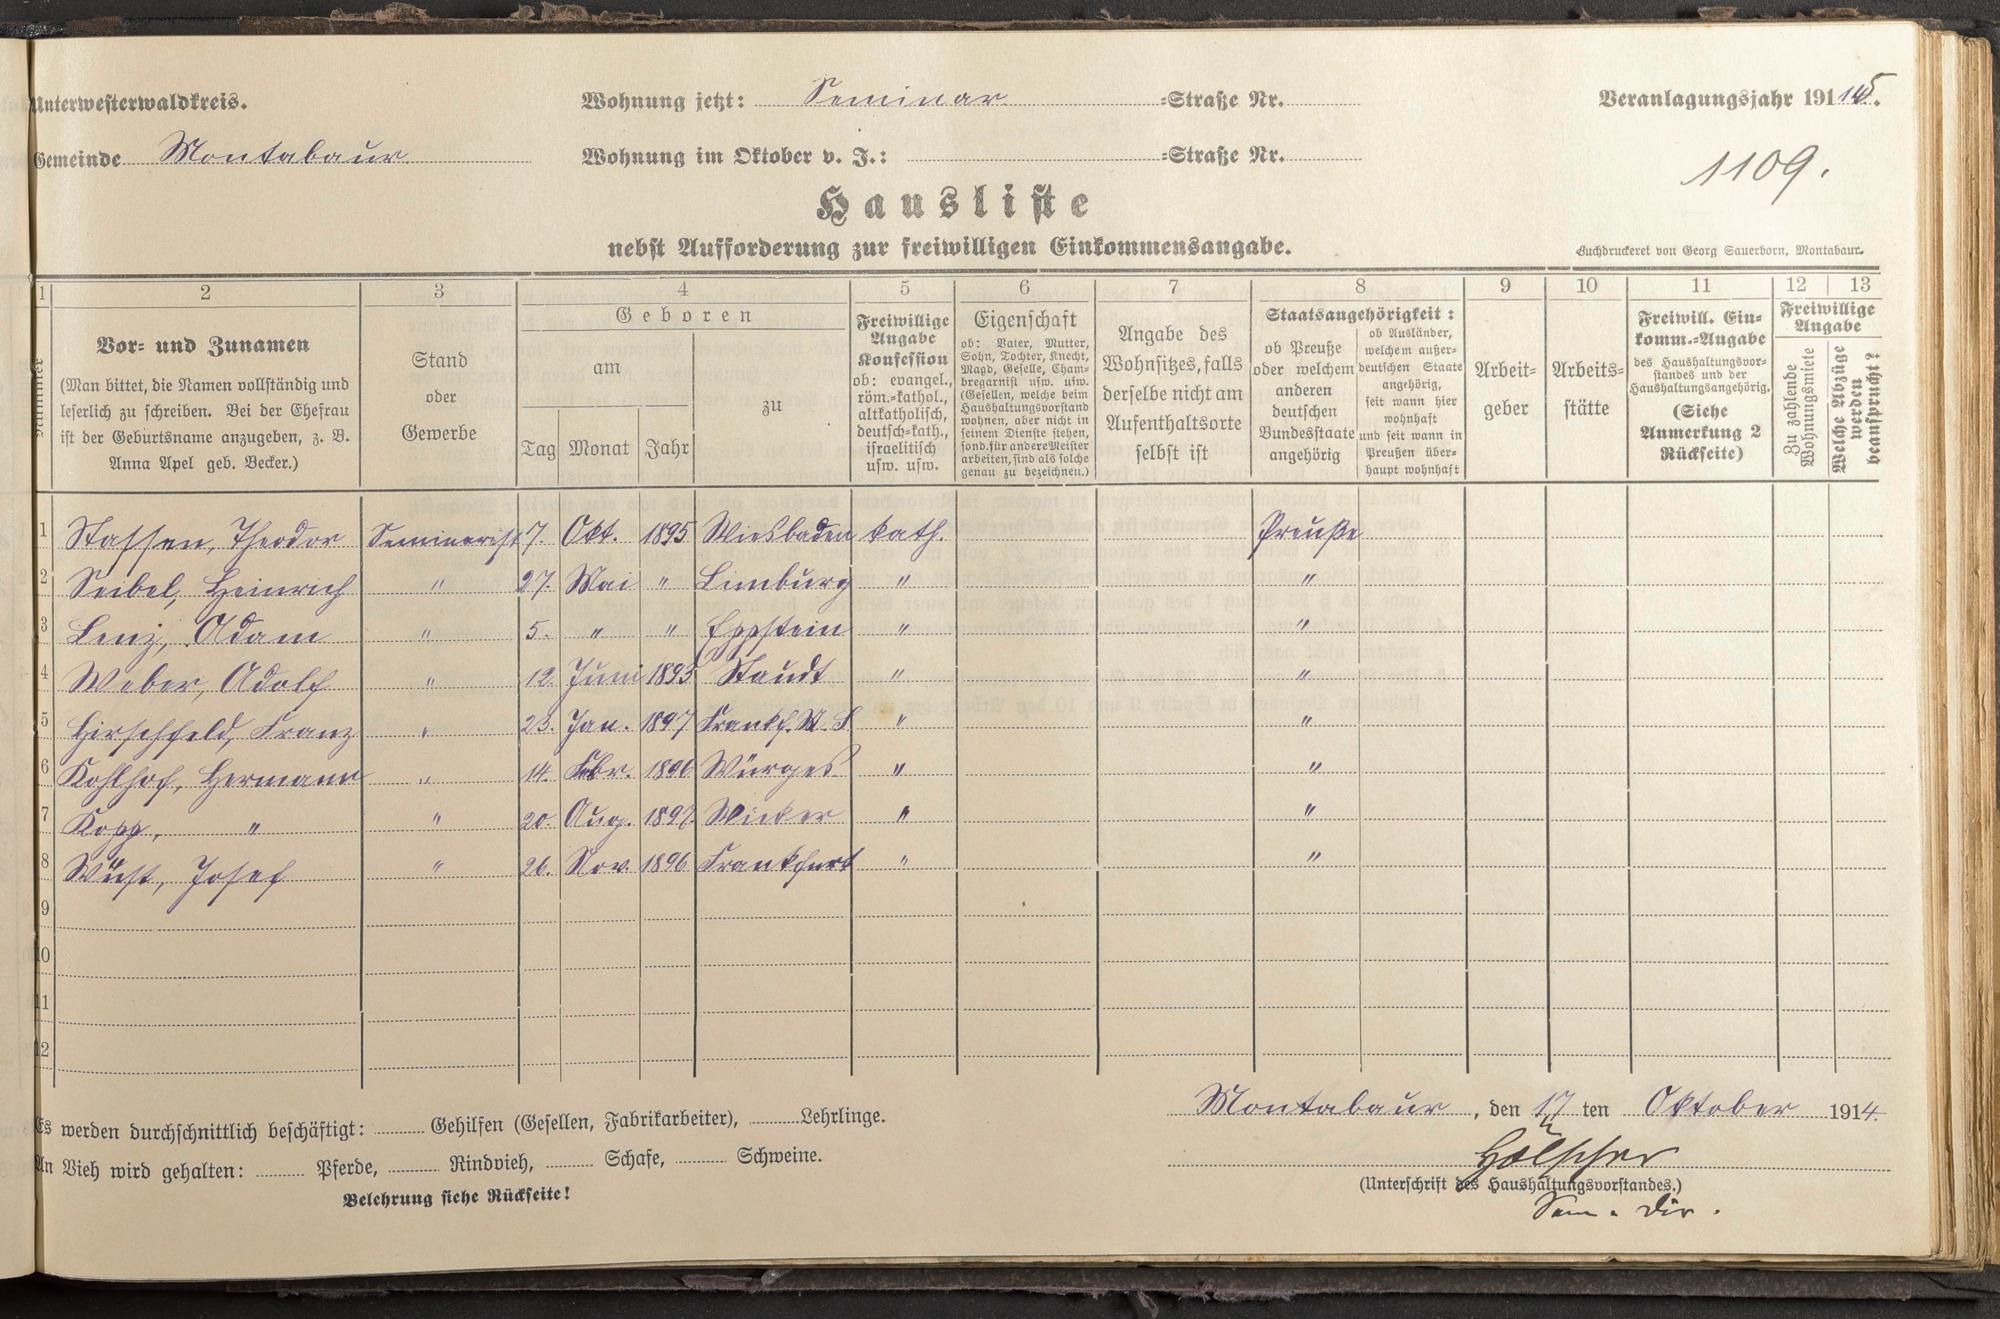 Unterwesterwaldkreis.
Wohnung jetzt: Seminar =Straße Nr.
Veranlagungsjahr 191 14/5.
Gemeinde Montabaur
Wohnung im Oktober v. J.: =Straße Nr.
1109.
Hausliste
nebst Aufforderung zur freiwilligen Einkommensangabe.
Buchdruckerei von Georg Sauerborn, Montabaur.
1 2 3 4 5 6 7 8 9 10 11 12 13
Nummer
Vor- und Zunamen
(Man bittet, die Namen vollständig und
leserlich zu schreiben. Bei der Ehefrau
ist der Geburtsname anzugeben, z. B.
Anna Apel geb. Becker.)
Stand
oder
Gewerbe
Geboren
am
Tag Monat Jahr
zu
Freiwillige
Angabe
Konfession
ob: evangel.,
röm.=kathol.,
altkatholisch,
deutsch=kath.,
israelitisch
usw. usw.
Eigenschaft
ob: Vater, Mutter,
Sohn, Tochter, Knecht,
Magd, Geselle, Cham-
bregarnist usw. usw.
(Gesellen, welche beim
Haushaltungsvorstand
wohnen, aber nicht in
seinem Dienste stehen,
sond. für andere Meister
arbeiten, sind als solche
genau zu bezeichnen.)
Angabe des
Wohnsitzes, falls
derselbe nicht am
Aufenthaltsorte
selbst ist
Staatsangehörigkeit:
ob Preuße
oder welchem
anderen
deutschen
Bundesstaate
angehörig
ob Ausländer,
welchem außer-
deutschen Staate
angehörig,
seit wann hier
wohnhaft
und seit wann in
Preußen über-
haupt wohnhaft
Arbeit-
geber
Arbeits-
stätte
Freiwill. Ein-
komm.=Angabe
des Haushaltungsvor-
standes und der
Haushaltungsangehörig.
(Siehe
Anmerkung 2
Rückseite)
Freiwillige
Angabe
Zu zahlende
Wohnungsmiete
Welche Abzüge
werden
beansprucht?
1 Staffen, Theodor Seminarist 7. Okt. 1895 Wiesbaden kath. Preuße
2 Seibel, Heinrich " 27. Mai " Limburg " "
3 Lenz, Adam " 5. " " Eppstein " "
4 Weber, Adolf " 12. Juni 1893 Staudt " "
5 Hirschfeld, Franz " 23. Jan. 1897 Frankf. " "
6 Kohlhof, Hermann " 14. Febr. 1896 Würges " "
7 Kopp, " " 20. Aug. 1897 Wicker " "
8 Wüst, Josef " 26. Nov. 1896 Frankfurt " "
9
10
11
12
Es werden durchschnittlich beschäftigt: Gehilfen (Gesellen, Fabrikarbeiter), Lehrlinge.
An Vieh wird gehalten: Pferde, Rindvieh, Schafe, Schweine.
Belehrung siehe Rückseite!
Montabaur, den 17 ten Oktober 1914.
Hölscher
(Unterschrift des Haushaltungsvorstandes.)
Sem. Dir.